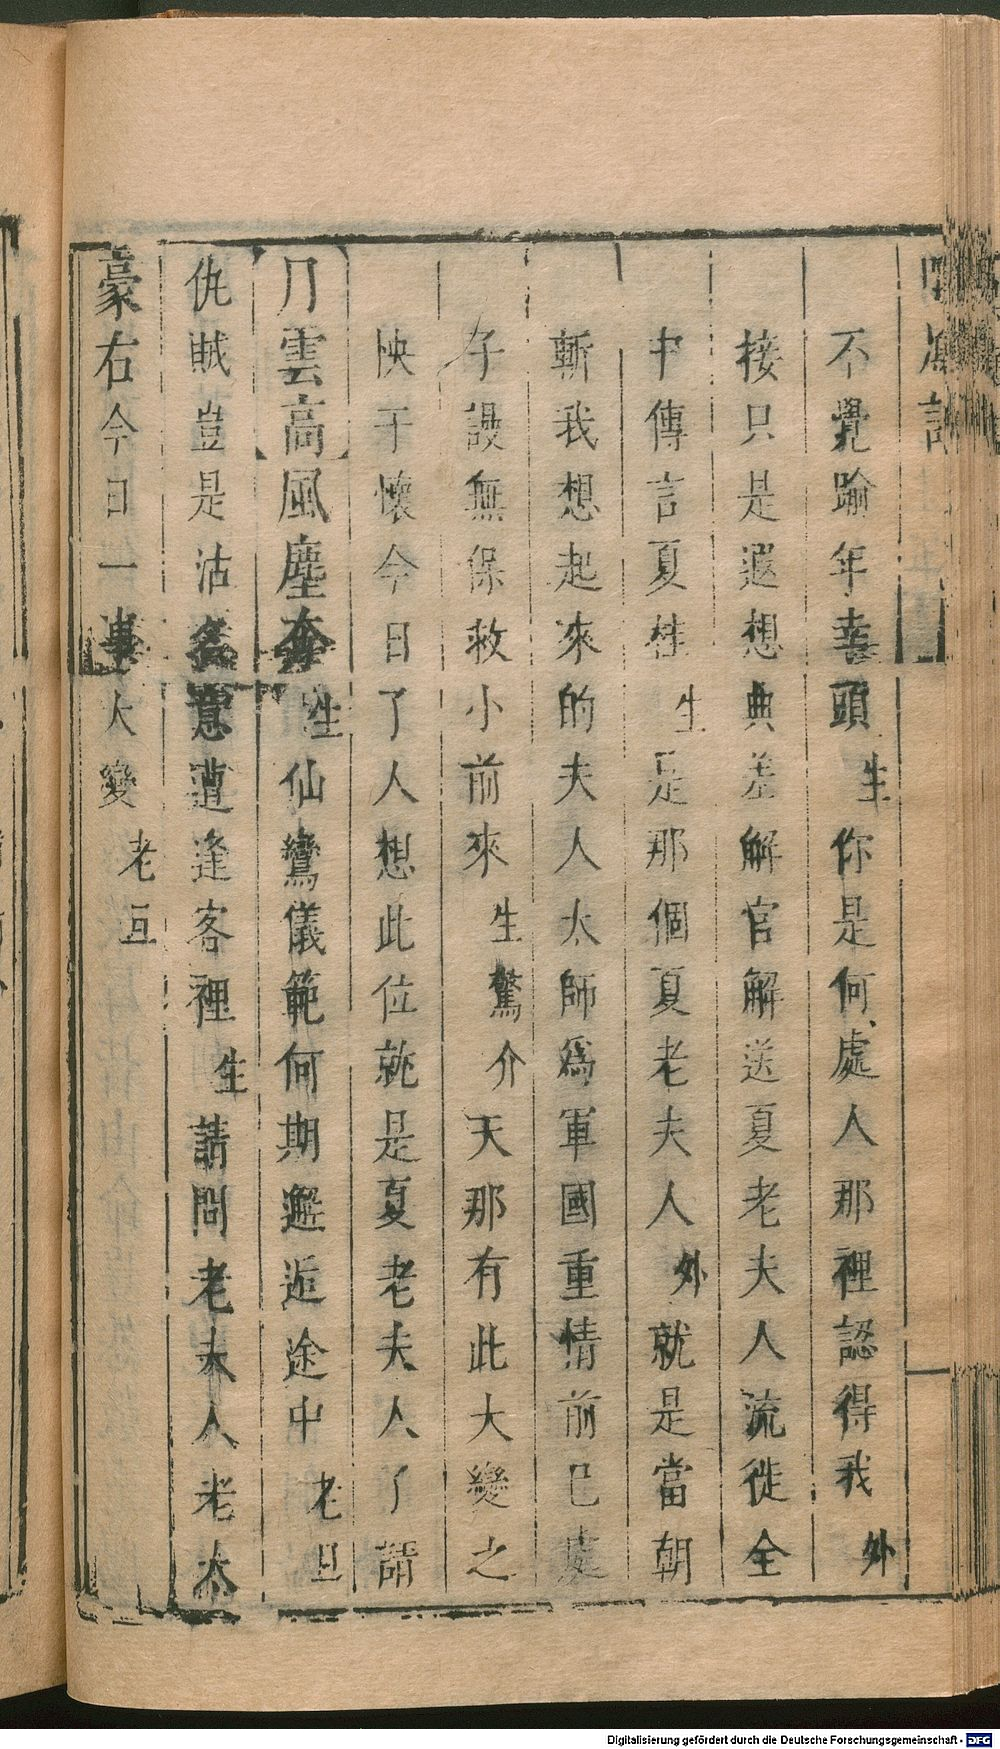 不覺踰年幸頭 生 你是何處人那裡認得我 外
接只是遐想典差解官解送夏老夫人流徙全
中傳言夏桂 生 是那個夏老夫人 外 就是當朝
斬我想起來的夫人太師爲軍國重情前已處
子謾無保救小前來 生 驚 介 天那有此大變之
怏于懷今日了人想此位就是夏老夫人了請
月雲高風塵奔 生 仙鸞儀範何期邂逅途中 老旦
仇賊豈是沽名意遭逢客裡 生 請問老夫人老太
豪右今日一事大變 老旦
Digitalisierung gefördert durch die Deutsche Forschungsgemeinschaft - DFG